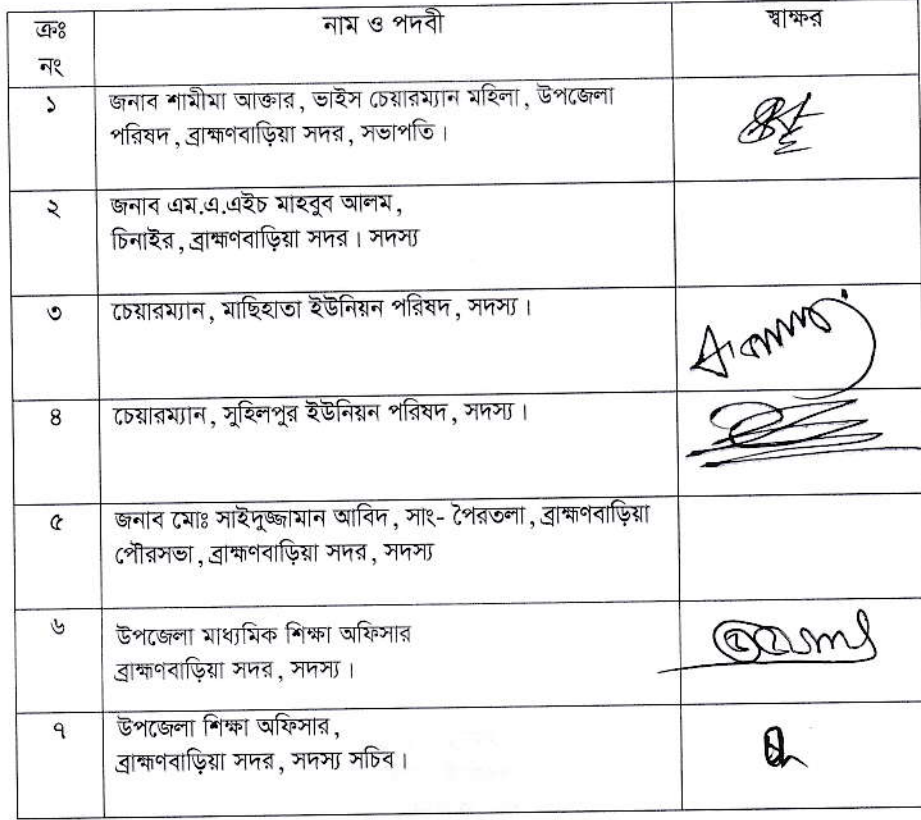 ক্রঃ নং	নাম ও পদবী	স্বাক্ষর
১	জনাব শামীমা আক্তার, ভাইস চেয়ারম্যান মহিলা, উপজেলা
পরিষদ, ব্রাহ্মণবাড়িয়া সদর, সভাপতি।
২	জনাব এম.এ.এইচ মাহবুব আলম,
চিনাইর, ব্রাহ্মণবাড়িয়া সদর। সদস্য
৩	চেয়ারম্যান, মাছিহাতা ইউনিয়ন পরিষদ, সদস্য।
৪	চেয়ারম্যান, সুহিলপুর ইউনিয়ন পরিষদ, সদস্য।
৫	জনাব মোঃ সাইদুজ্জামান আবিদ, সাং- পৈরতলা, ব্রাহ্মণবাড়িয়া
পৌরসভা, ব্রাহ্মণবাড়িয়া সদর, সদস্য
৬	উপজেলা মাধ্যমিক শিক্ষা অফিসার
ব্রাহ্মণবাড়িয়া সদর, সদস্য।
৭	উপজেলা শিক্ষা অফিসার,
ব্রাহ্মণবাড়িয়া সদর, সদস্য সচিব।